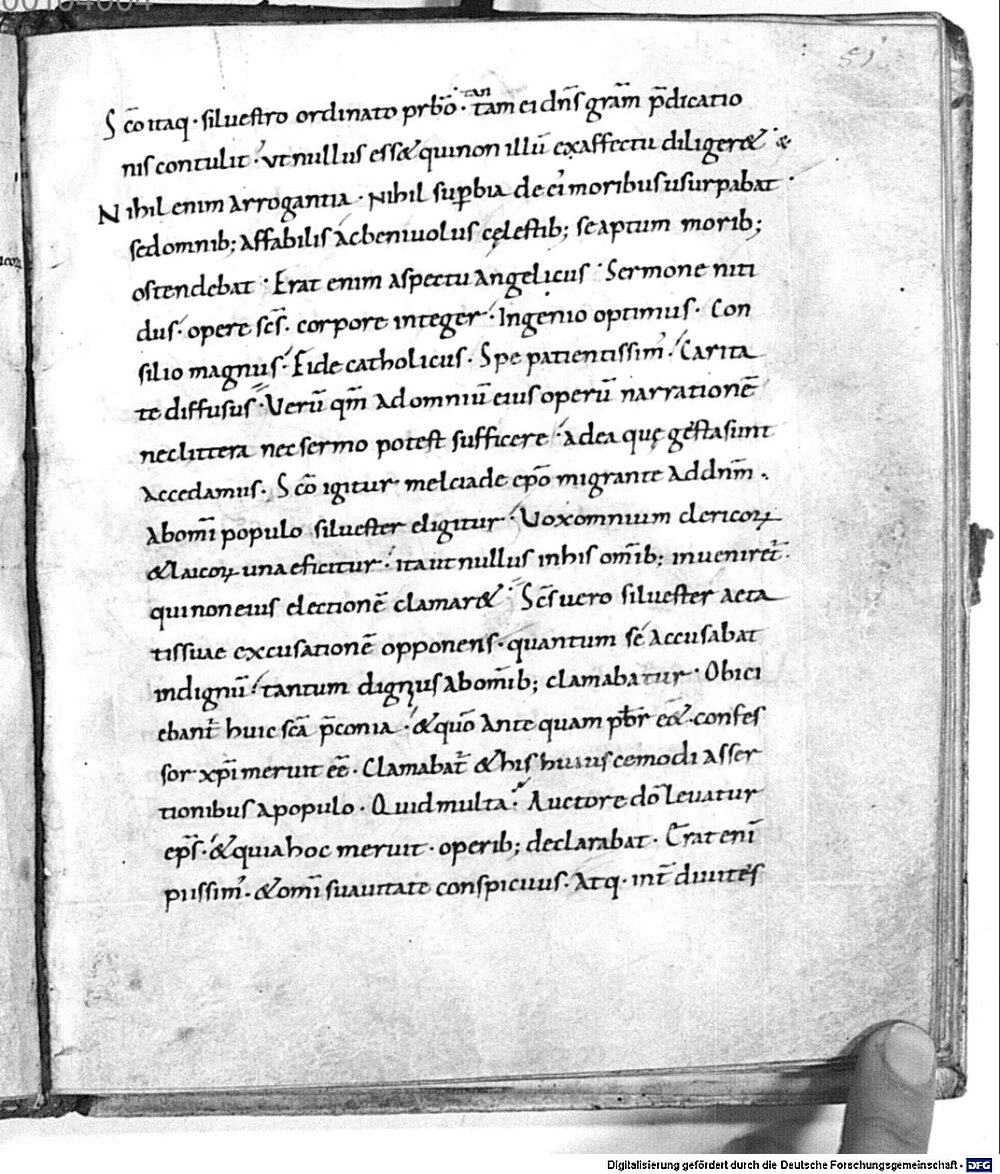 00104004
51
Sc̄o itaq· siluestro ordinato prb̄o· tan tam ei dn̄s gram̄ p̄dicatio
nis contulit· ut nullus ess& qui non illū ex affectu diliger&·
Nihil enim arrogantia· Nihil suꝑbia de ei moribus usurpabat·
sed omnib; affabilis ac beniuolus cęlestib; se aptum morib;
ostendebat· Erat enim aspectu angelicus· Sermone niti
dus· opere scs̄· corpore integer· Ingenio optimus· Con
silio magnus· Fide catholicus· Spe patientissim᾽· Carita
te diffusus· Verū qm̄ ad omniū eius operū narrationē
nec littera nec sermo potest sufficere· ad ea quę gesta sunt
accedamus· Sc̄o igitur melciade ep̄o migrante ad dnm̄·
ab om̄i populo siluester eligitur· Uox omnium clericoꝝ
& laicoꝝ una eficitur· ita ut nullus in his om̄ib; inueniret̄·
qui non eius electionē clamar&· Scs̄ uero siluester aeta
tis suae excusationē opponens· quantum se accusabat
indignū· tantum dignus ab om̄ib; clamabatur· Obici
ebant̄ huic sc̄a p̄conia· & quō ante quam pbr̄ e&· confes
sor xp̄i meruit eē· Clamabat̄ & his huius cemodi asser
tionibus a populo· Quid multa· Auctore dō leuatur
ep̄s· & quia hoc meruit· operib; declarabat· Erat enī
piissim᾽· & om̄i suauitate conspicuus· Atq· int̄ diuites
Digitalisierung gefördert durch die Deutsche Forschungsgemeinschaft - DFG